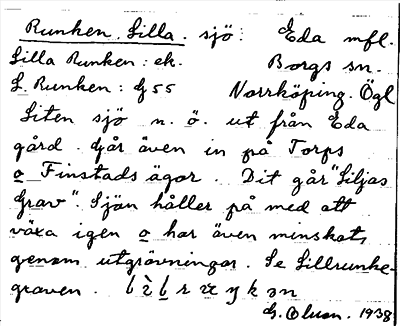 Runken, Lilla. sjö: Eda mfl.
Lilla Runken: ek. Borgs sn.
L. Runken: G 55 Norrköping. Ögl
Liten sjö n. ö. ut från Eda
gård. Går även in på Torps
o Finstads ägor. Dit går "Liljas
Grav". Sjön håller på med att
växa igen o har även minskats
genom utgrävningar. Se Lillrunke-
graven.
G. Olson. 1938